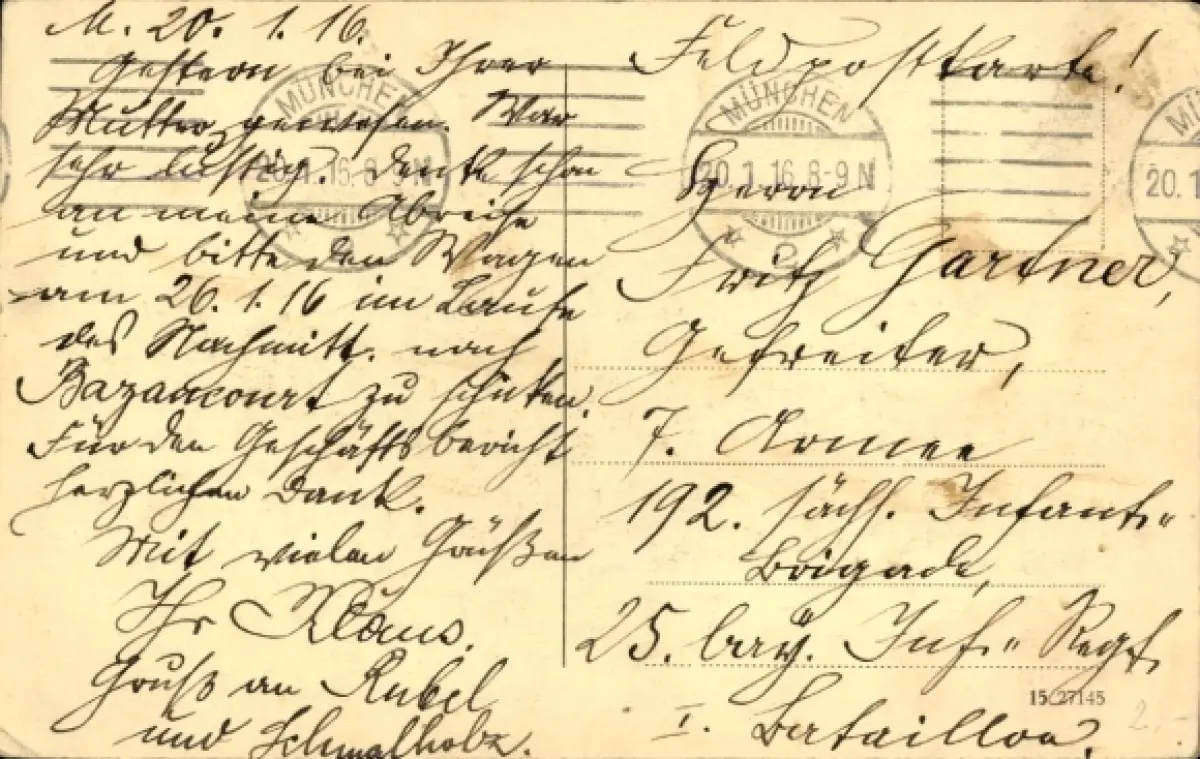 M. 20. 1. 16.
Gestern bei Ihrer
Mutter gewesen. War
sehr lustig. Denke schon
an meine Abreise
und bitte den Wagen
am 26. 1. 16 im Laufe
des Nachmitt. nach
Bazancourt zu schicken.
Für den Geschäftsbericht
herzlichen Dank.
Mit vielen Grüßen
Ihr Klaus.
Gruß an Rubel
und Schmalholz.
Feldpostkarte!
Herrn
Fritz Gartner,
Gefreiter,
7. Armee
192. sächs. Infant.-
Brigade,
25. bay. Inf.- Regt.
I. Bataillon.
MÜNCHEN
20.1.16.8-9N
2
MÜNCHEN
20.1.16.8-9N
2
MÜ
20.1
15 27145
2.-